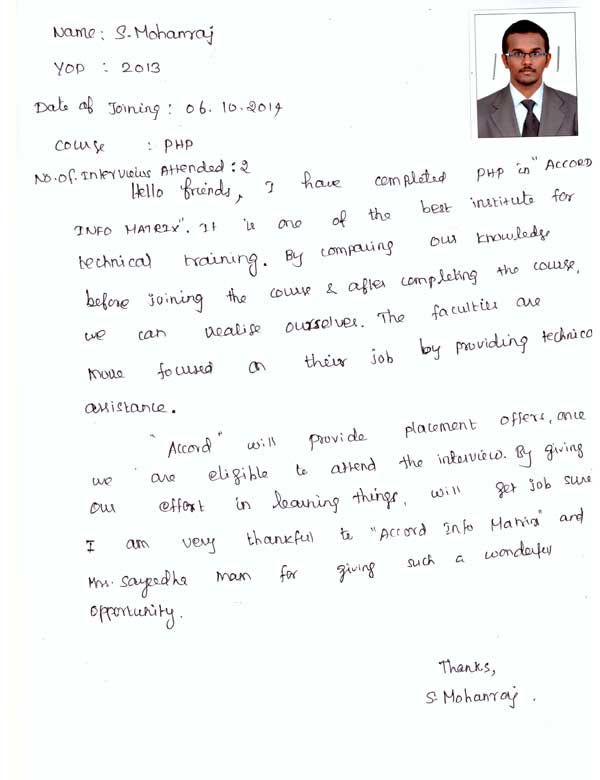 Name: S. Mohanraj
YOP : 2013
Date of Joining: 06.10.2014
Course : PHP
No. of. Interviews Attended: 2
Hello friends, I have completed PHP in "ACCORD
INFO MATRIX". It is one of the best institute for
technical training. By comparing our knowledge
before joining the course & after completing the course,
we can realise ourselves. The faculties are
more focused on their job by providing technica
assistance.
"Accord" will provide placement offers, once
we are eligible to attend the interview. By giving
our effort in learning things, will get job sure
I am very thankful to "Accord Info Matrix" and
Mrs. Sayeedha mam for giving such a wonderful
opportunity.
Thanks,
S. Mohanraj.